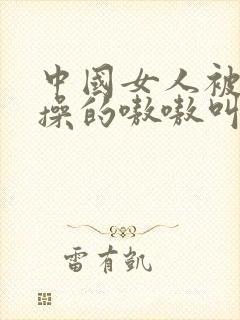 中國女人被
操的嗷嗷叫
雷有凱